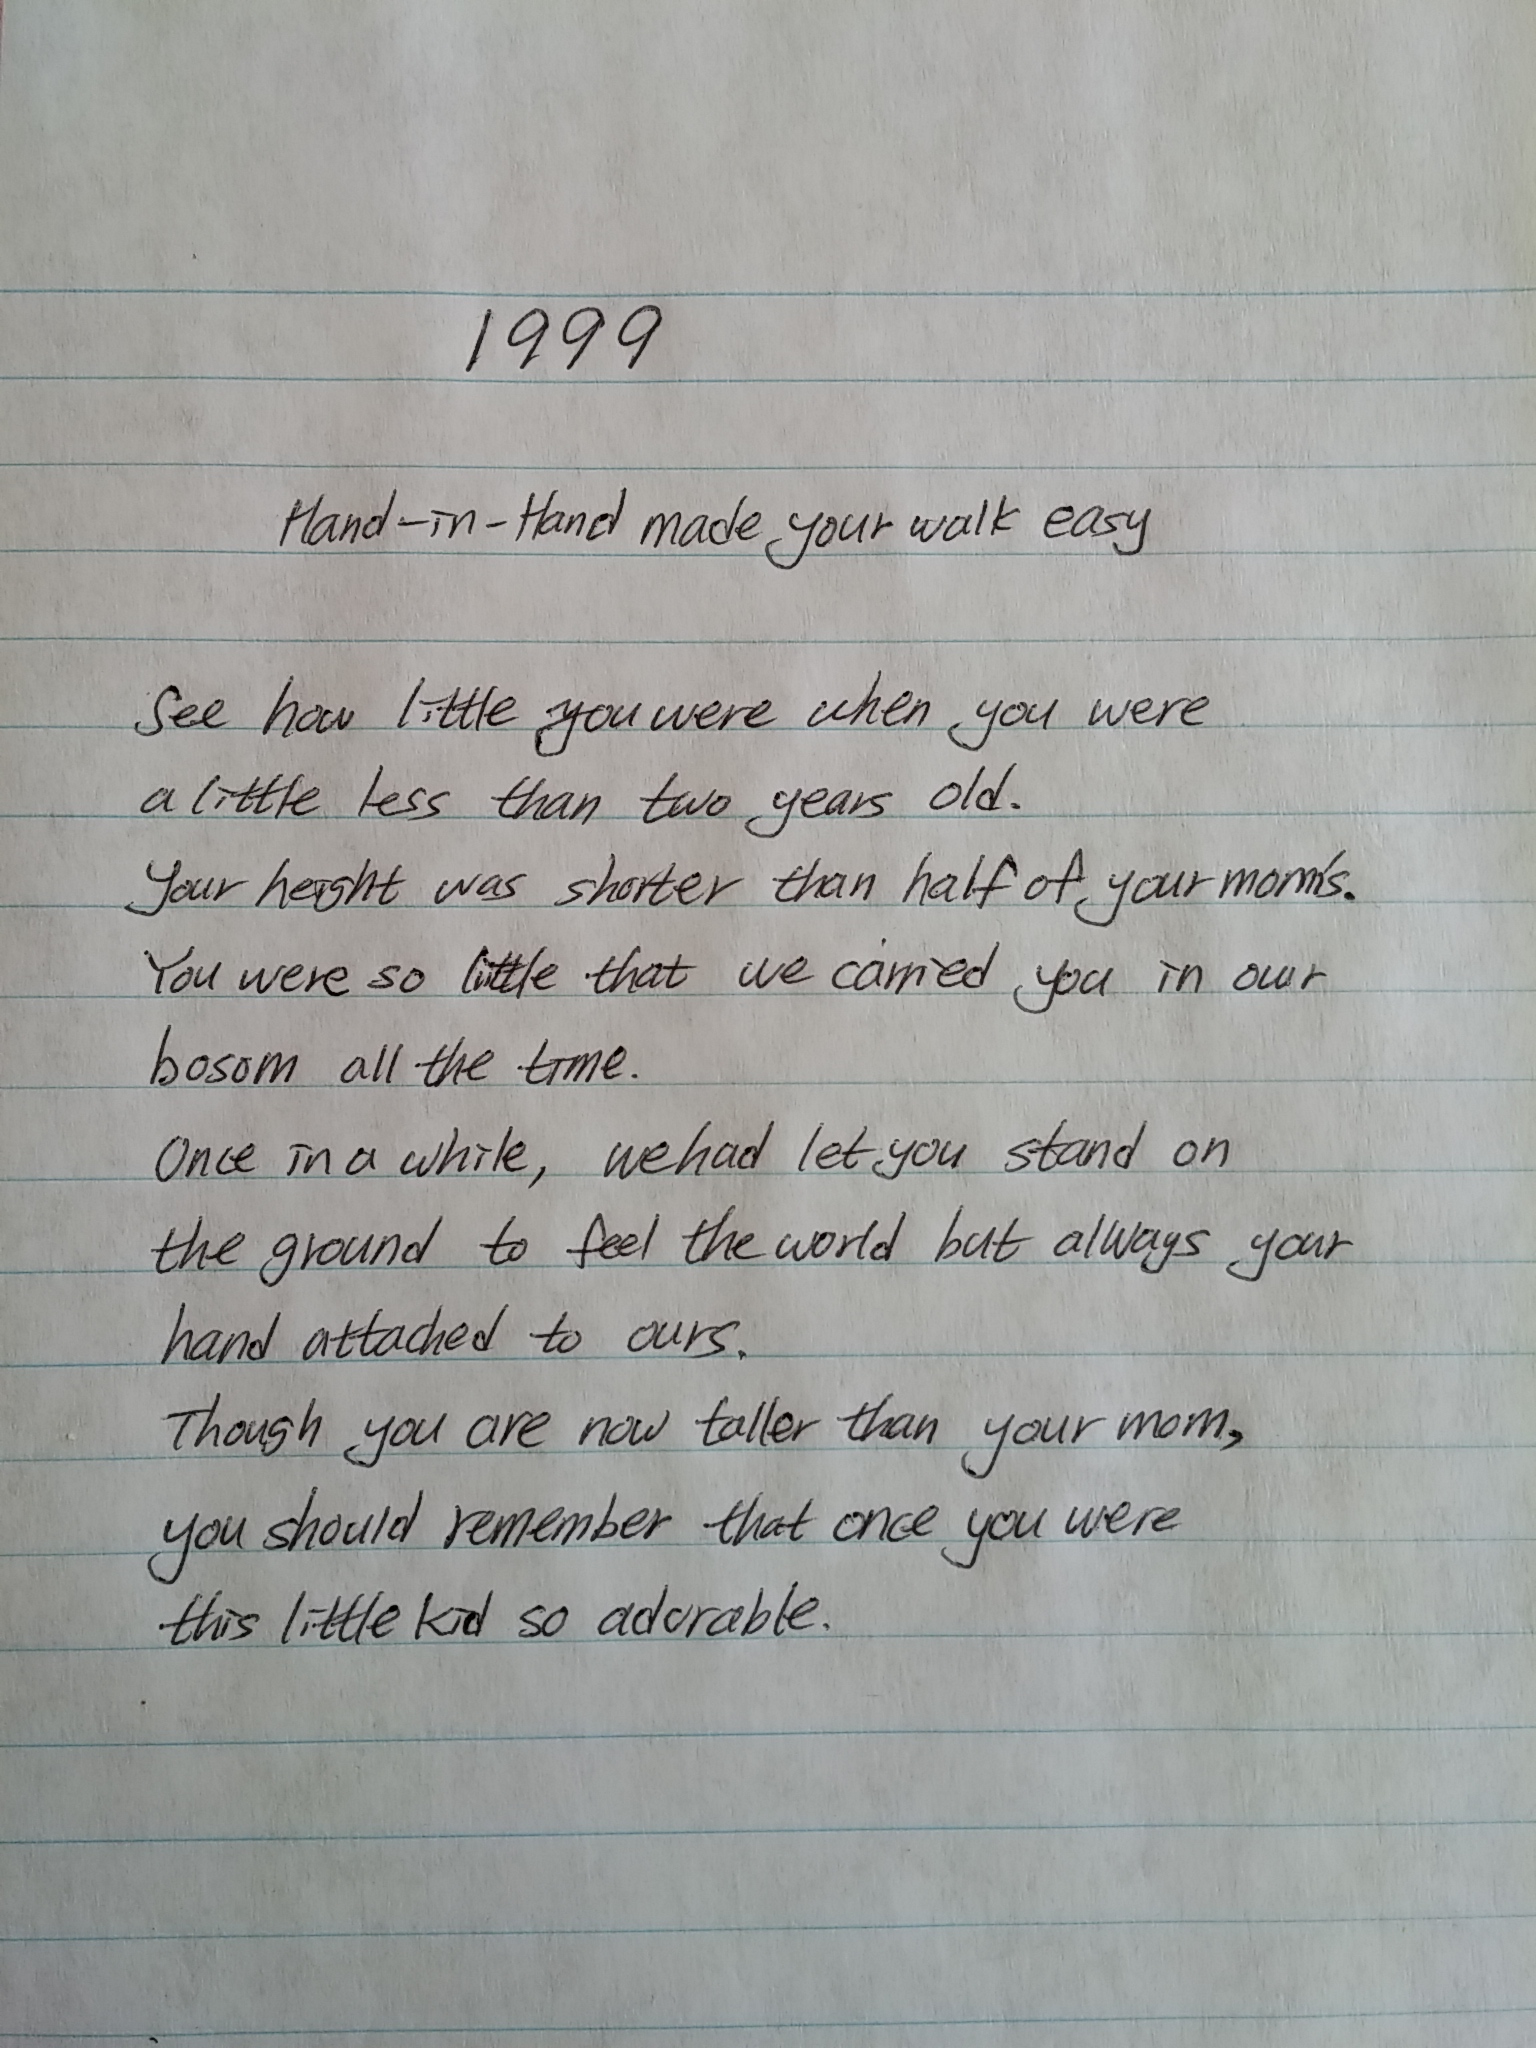 1999
Hand-in-Hand made your walk easy
See how little you were when you were
a little less than two years old.
Your height was shorter than half of your mom's.
You were so little that we carried you in our
bosom all the time.
Once in a while, we had let you stand on
the ground to feel the world but always your
hand attached to ours.
Though you are now taller than your mom,
you should remember that once you were
this little kid so adorable.